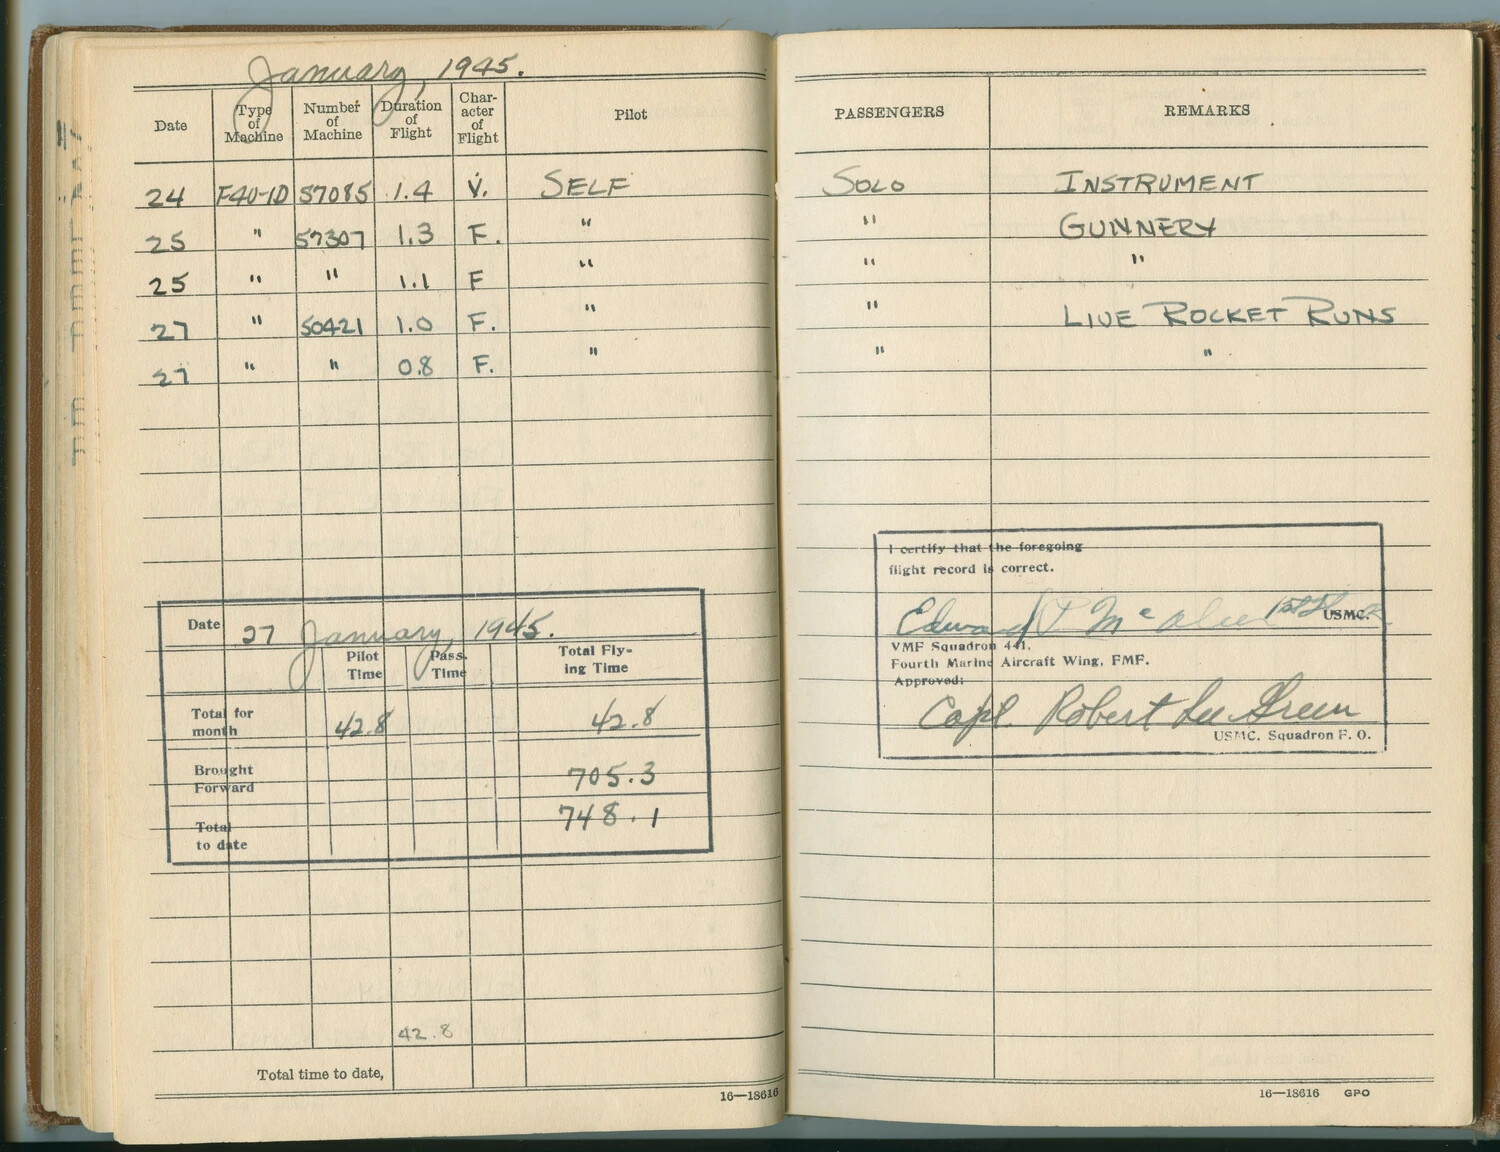 January, 1945.
Date Type of Machine Number of Machine Duration of Flight Char-acter of Flight Pilot PASSENGERS REMARKS
24 F4U-1D 57085 1.4 V. SELF SOLO INSTRUMENT
25 " 57307 1.3 F. " " GUNNERY
25 " " 1.1 F " " "
27 " 50421 1.0 F. " " LIVE ROCKET RUNS
27 " " 0.8 F. " " "
Date 27 January, 1945.
Pilot Time Pass. Time Total Fly-ing Time
Total for month 42.8 42.8
Brought Forward 705.3
Total to date 748.1
42.8
Total time to date,
16—18616
I certify that the foregoing
flight record is correct.
Edward Mc 1st Lt USMC.
VMF Squadron 441.
Fourth Marine Aircraft Wing, FMF.
Approved:
Capt. Robert Lee Green
USMC. Squadron F. O.
16—18616 GPO